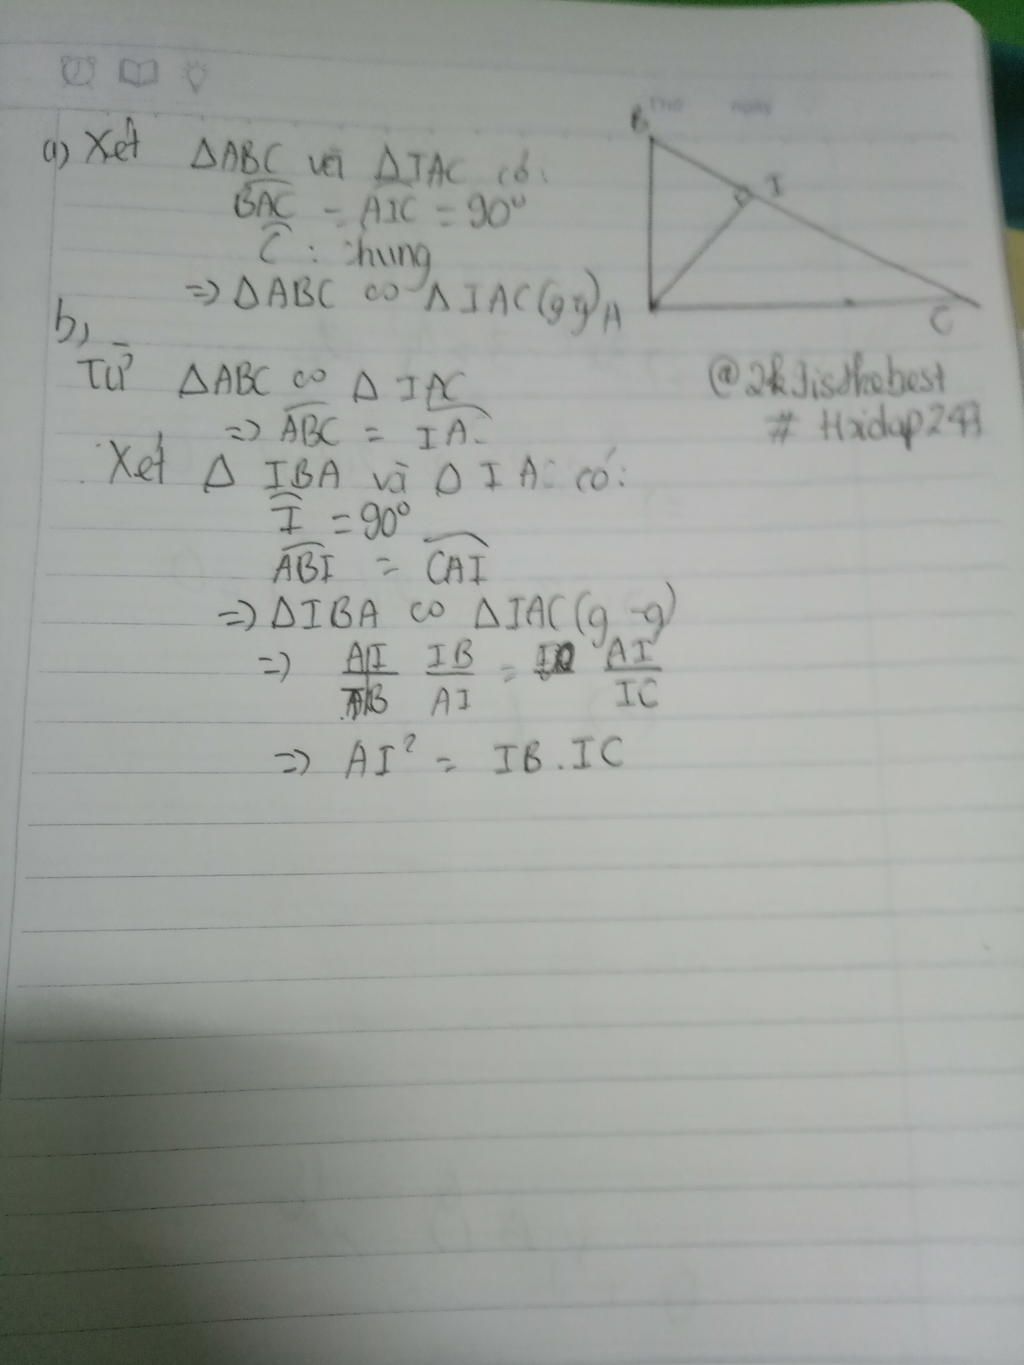 a) Xét ΔABC với ΔIAC có:
BAC = AIC = 90°
C : chung
=> ΔABC ∽ ΔIAC (g g)
b)
Từ ΔABC ∽ ΔIAC
=> ABC = IAC
Xét ΔIBA và ΔIAC có:
I = 90°
ABI = CAI
=> ΔIBA ∽ ΔIAC (g - g)
=> IB/AI = AI/IC
=> AI² = IB.IC
B
I
A
C
@2k9isthebest
# Hoidap247